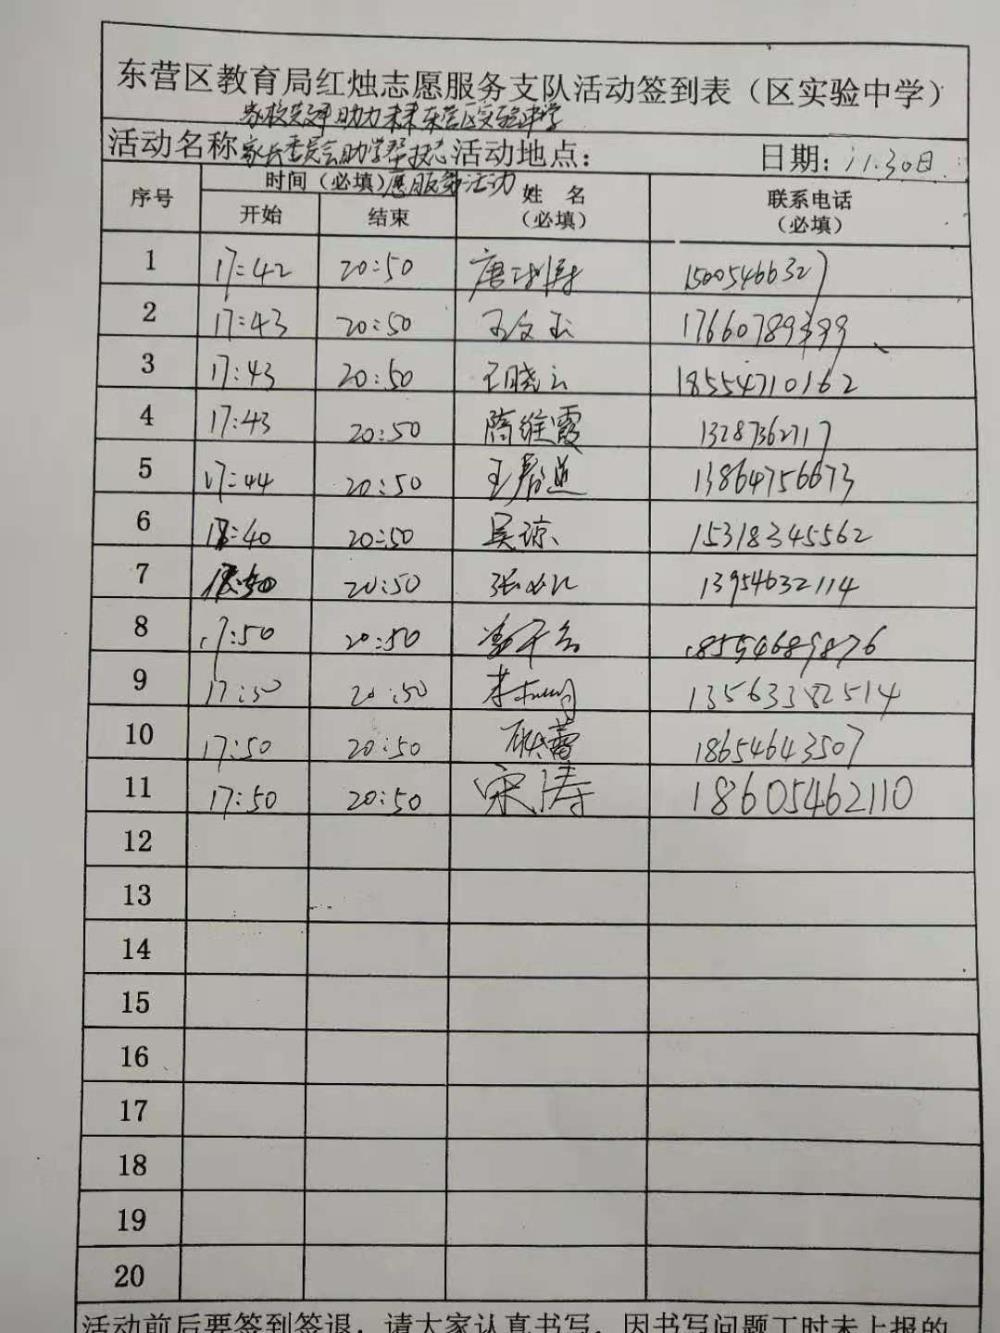 东营区教育局红烛志愿服务支队活动签到表（区实验中学）
家校共建助力未来东营区实验中学
活动名称 家长委员会助学帮扶志 活动地点： 日期：11.30日
时间（必填） 愿服务活动
序号 开始 结束 姓 名（必填） 联系电话（必填）
1 17:42 20:50 唐 15005466327
2 17:43 20:50 王文玉
3 17:43 20:50 王晓云 18554710162
4 17:43 20:50 隋维霞 13287362717
5 17:44 20:50 王 13864756673
6 20:50 吴琼 15318345562
7 20:50 张 13954632114
8 17:50 20:50 18554689876
9 17:50 20:50 13563382514
10 17:50 20:50 蕾 18654643507
11 17:50 20:50 宋涛 18605462110
12
13
14
15
16
17
18
19
20
活动前后要签到签退，请大家认真书写，因书写问题工时未上报的